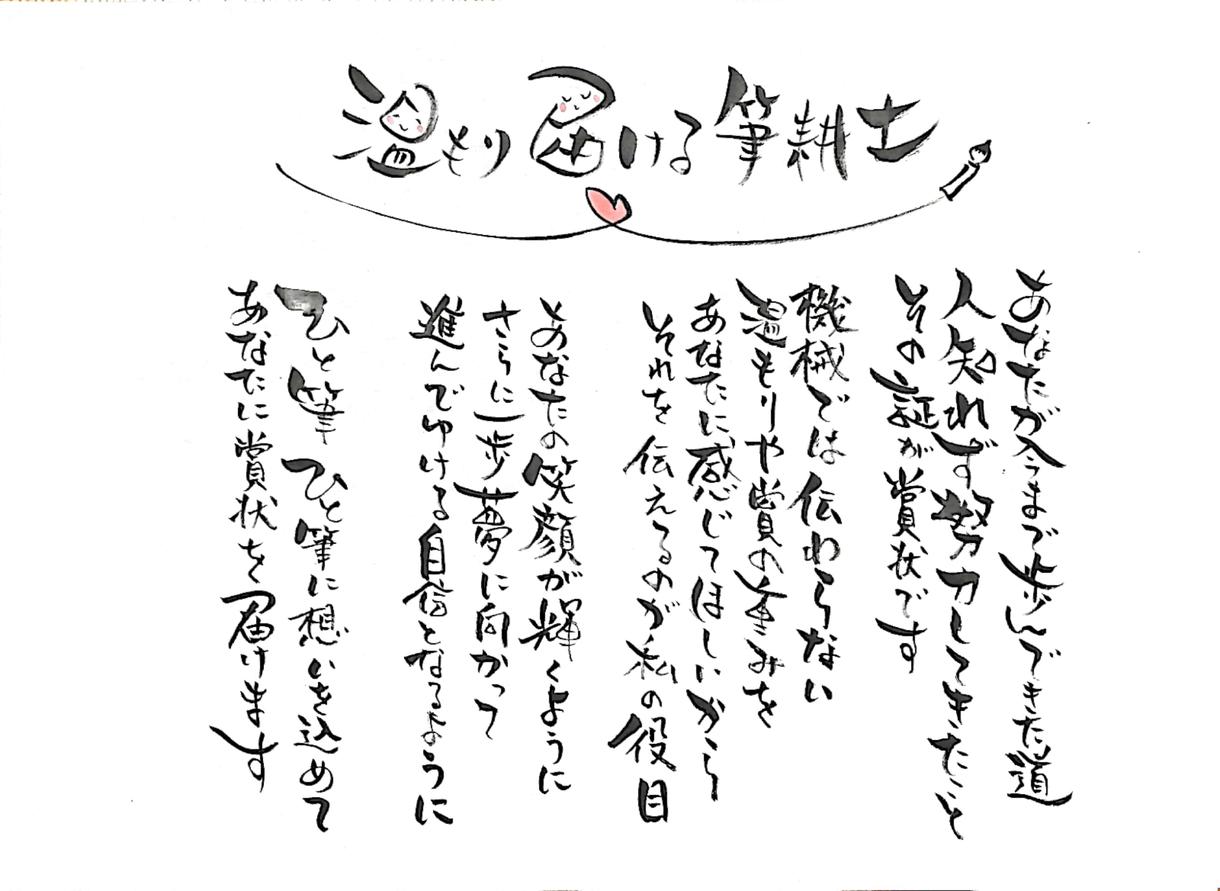 温もり届ける筆耕士
あなたが今まで歩んできた道
人知れず努力してきたこと
その証が賞状です
機械では伝わらない
温もりや賞の重みを
あなたに感じてほしいから
それを伝えるのが私の役目
あなたの笑顔が輝くように
さらに一歩夢に向かって
進んでゆける自信となるように
ひと筆ひと筆に想いを込めて
あなたに賞状を届けます